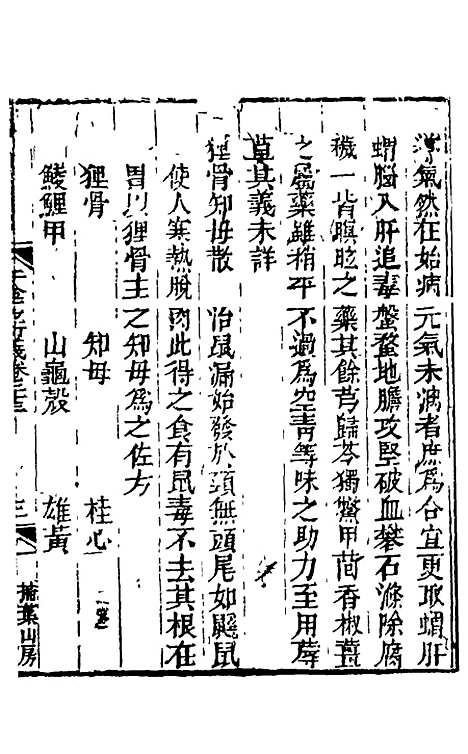 氣然在始病元氣未漓者庶爲合宜更取蝟肝
蝟腦入肝追毒螌蝥地膽攻堅破血礬石滌除腐
穢一皆瞑眩之藥其餘芎歸芩獨鱉甲茴香椒薑
之屬藥雖稍平不過爲空青等味之助力至用蓐
草其義未詳
狸骨知毋散　治鼠漏始發於頭無頭尾如鼷鼠
使人寒熱脫肉此得之食有鼠毒不去其根在
胃以狸骨主之知毋爲之佐方
狸骨　知毋　桂心
鯪鯉甲　山龜殼　雄黃
千金方衍義卷二十三
三
掃葉山房